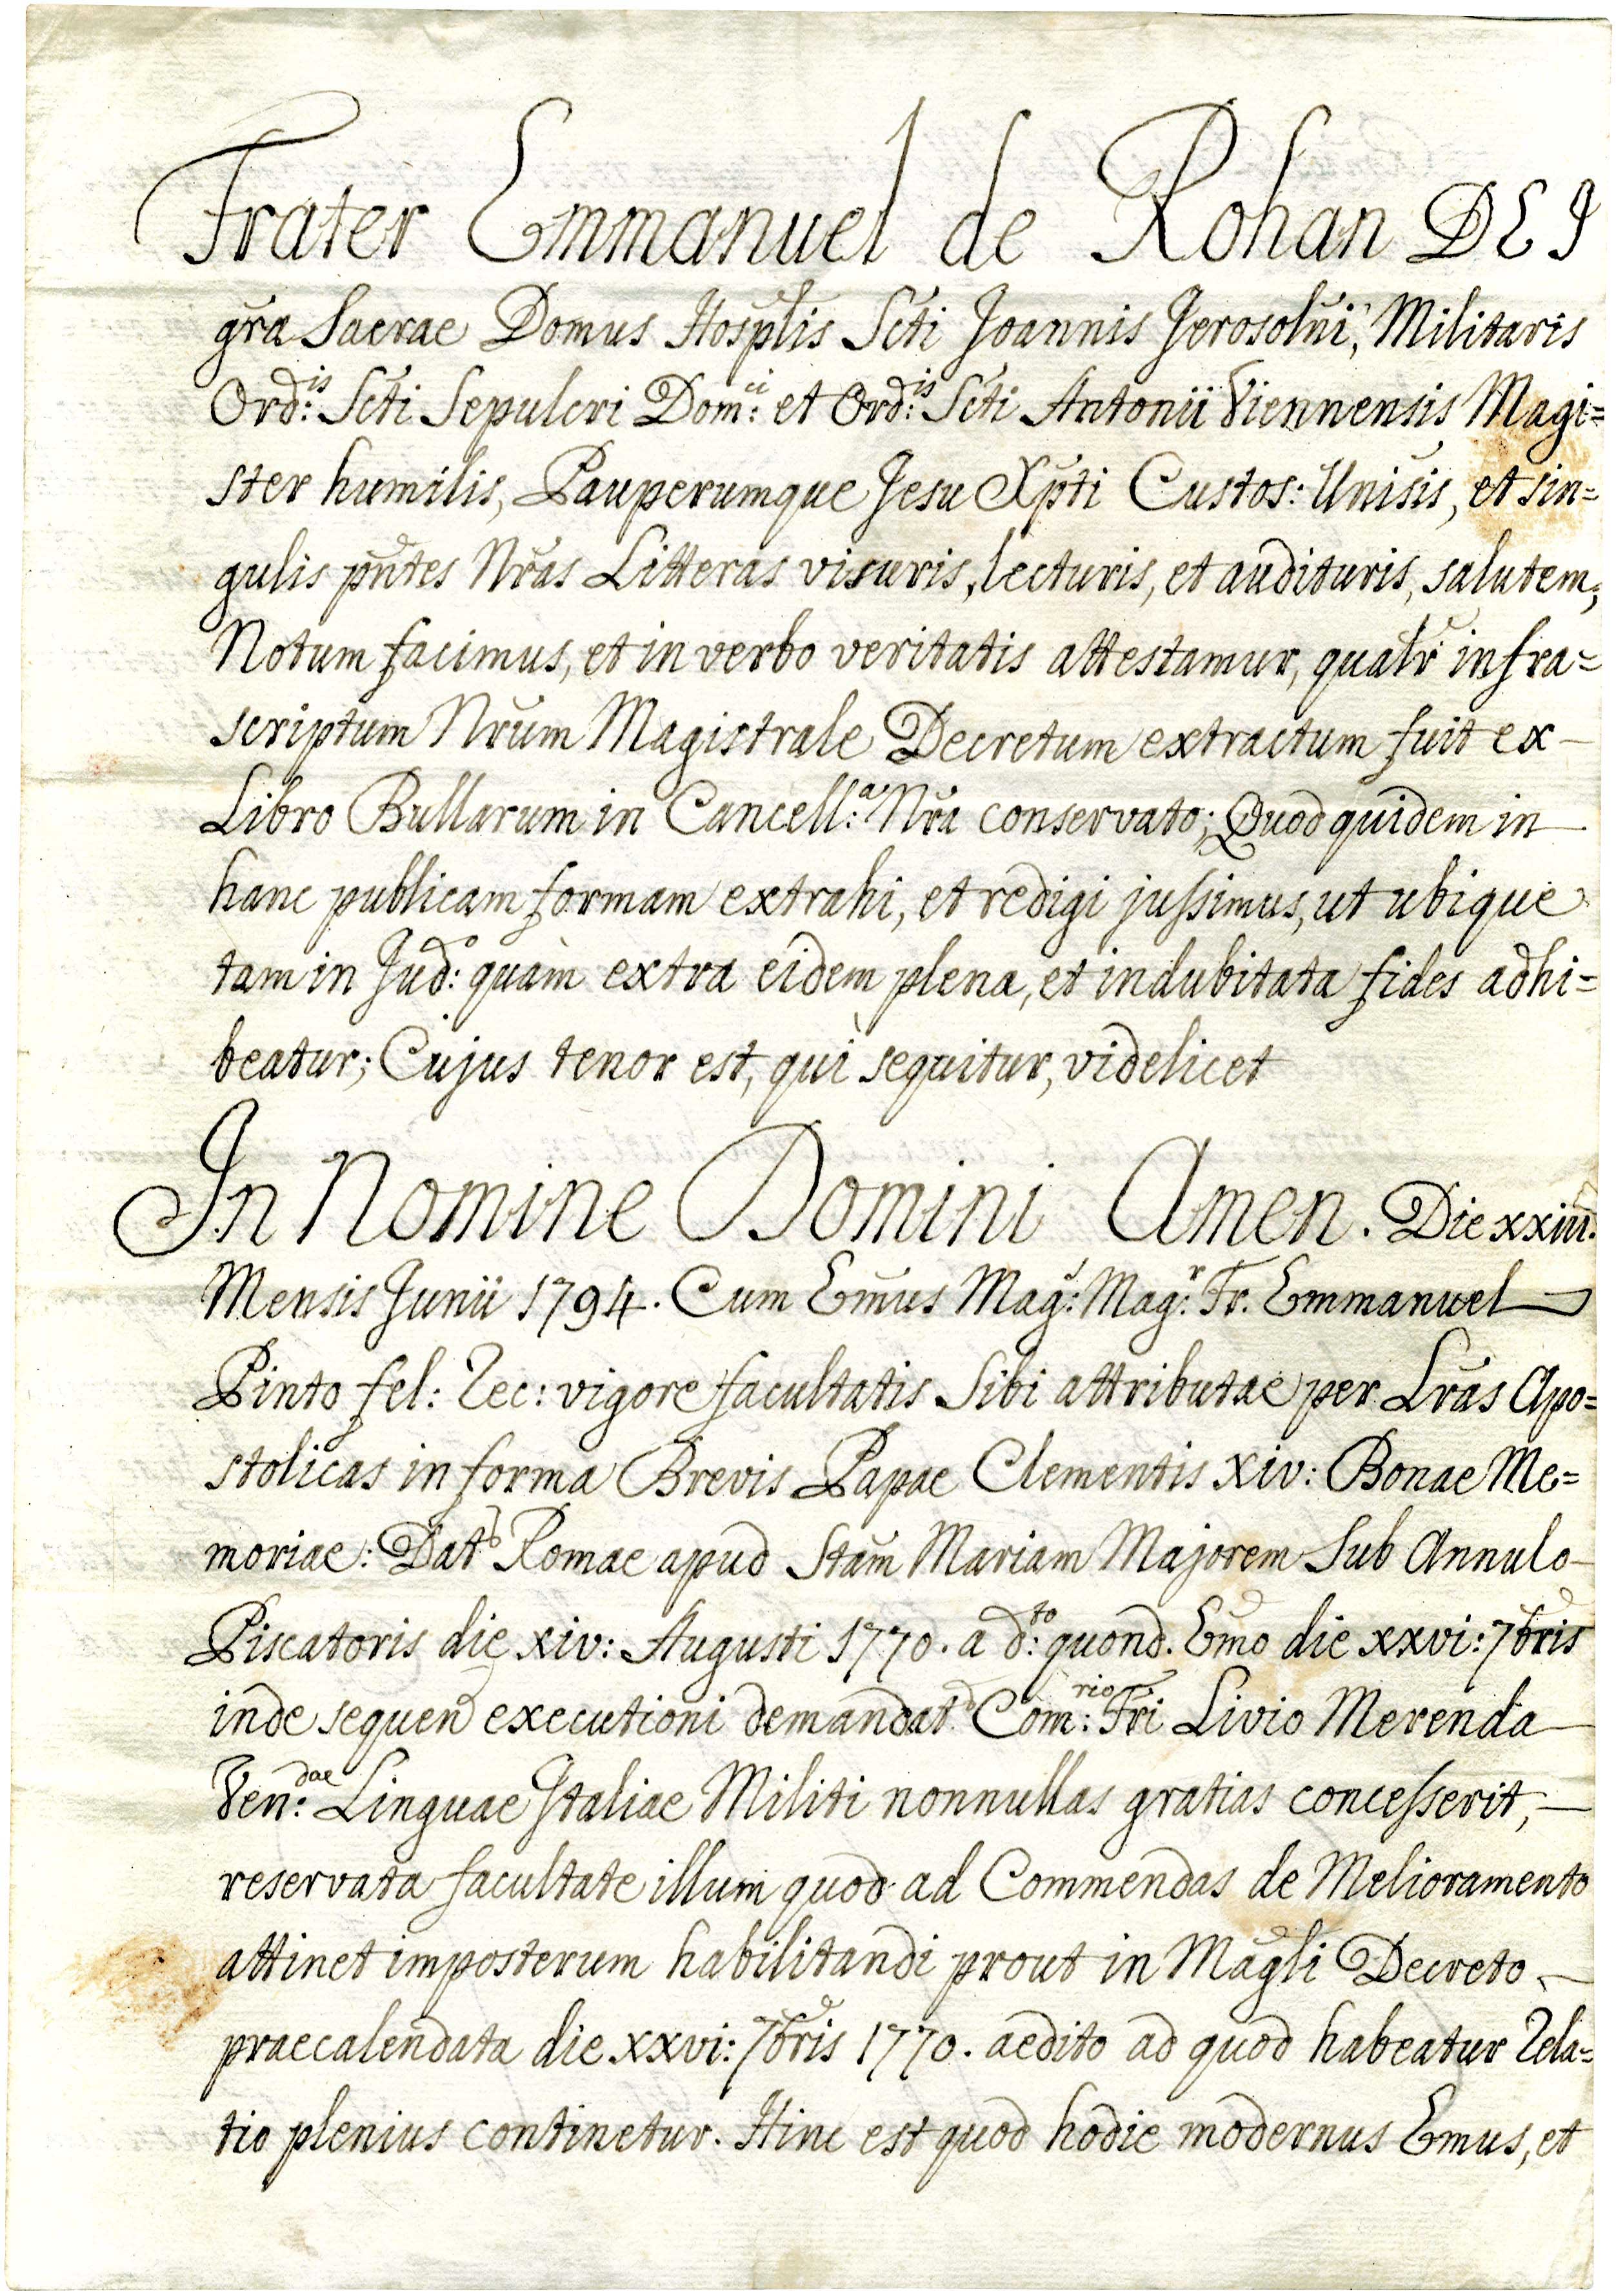 Frater Emmanuel de Rohan DEI
gr̃a Sacrae Domus Hosp̃lis Sc̃ti Joannis Jerosolñi, Militaris
Ord:is Sc̃ti Sepulcri Dom:ci et Ord:is Sc̃ti Antonii Viennensis Magi=
ster humilis, Pauperumque Jesu Xp̃ti Custos: Uniṽsis, et sin=
gulis pñtes Nr̃as Litteras visuris, lecturis, et audituris, salutem;
Notum facimus, et in verbo veritatis attestamur, qualr̃ infra=
scriptum Nr̃um Magistrale Decretum extractum fuit ex—
Libro Bullarum in Cancell:a Nr̃a conservato; Quod quidem in—
hanc publicam formam extrahi, et redigi jussimus, ut ubique
tam in Jud:o quàm extra eidem plena, et indubitata fides adhi=
beatur; Cujus tenor est, quì sequitur, videlicet
In Nomine Domini Amen. Die xxiii.
Mensis Junii 1794. Cum Em̃us Mag:s Mag:r Fr. Emmanuel—
Pinto fel: rec: vigore facultatis Sibi attributae per Lr̃as Apo=
stolicas in forma Brevis Papae Clementis xiv: Bonae Me=
moriae: Dat Romae apud Stam̃ Mariam Majorem Sub Annulo—
Piscatoris die xiv: Augusti 1770. a d:to quond. Em̃o die xxvi: 7bris
inde sequen executioni demandat Com:rio Fr̃i Livio Merenda—
Ven:dae Linguae Italiae Militi nonnullas gratias concesserit,—
reservata facultate illum quod ad Commendas de Melioramento
attinet imposterum habilitandi prout in Mag̃li Decreto—
praecalendata die xxvi: 7bris 1770. aedito ad quod habeatur rela=
tio plenius continetur. Hinc est quod hodie modernus Emus, et